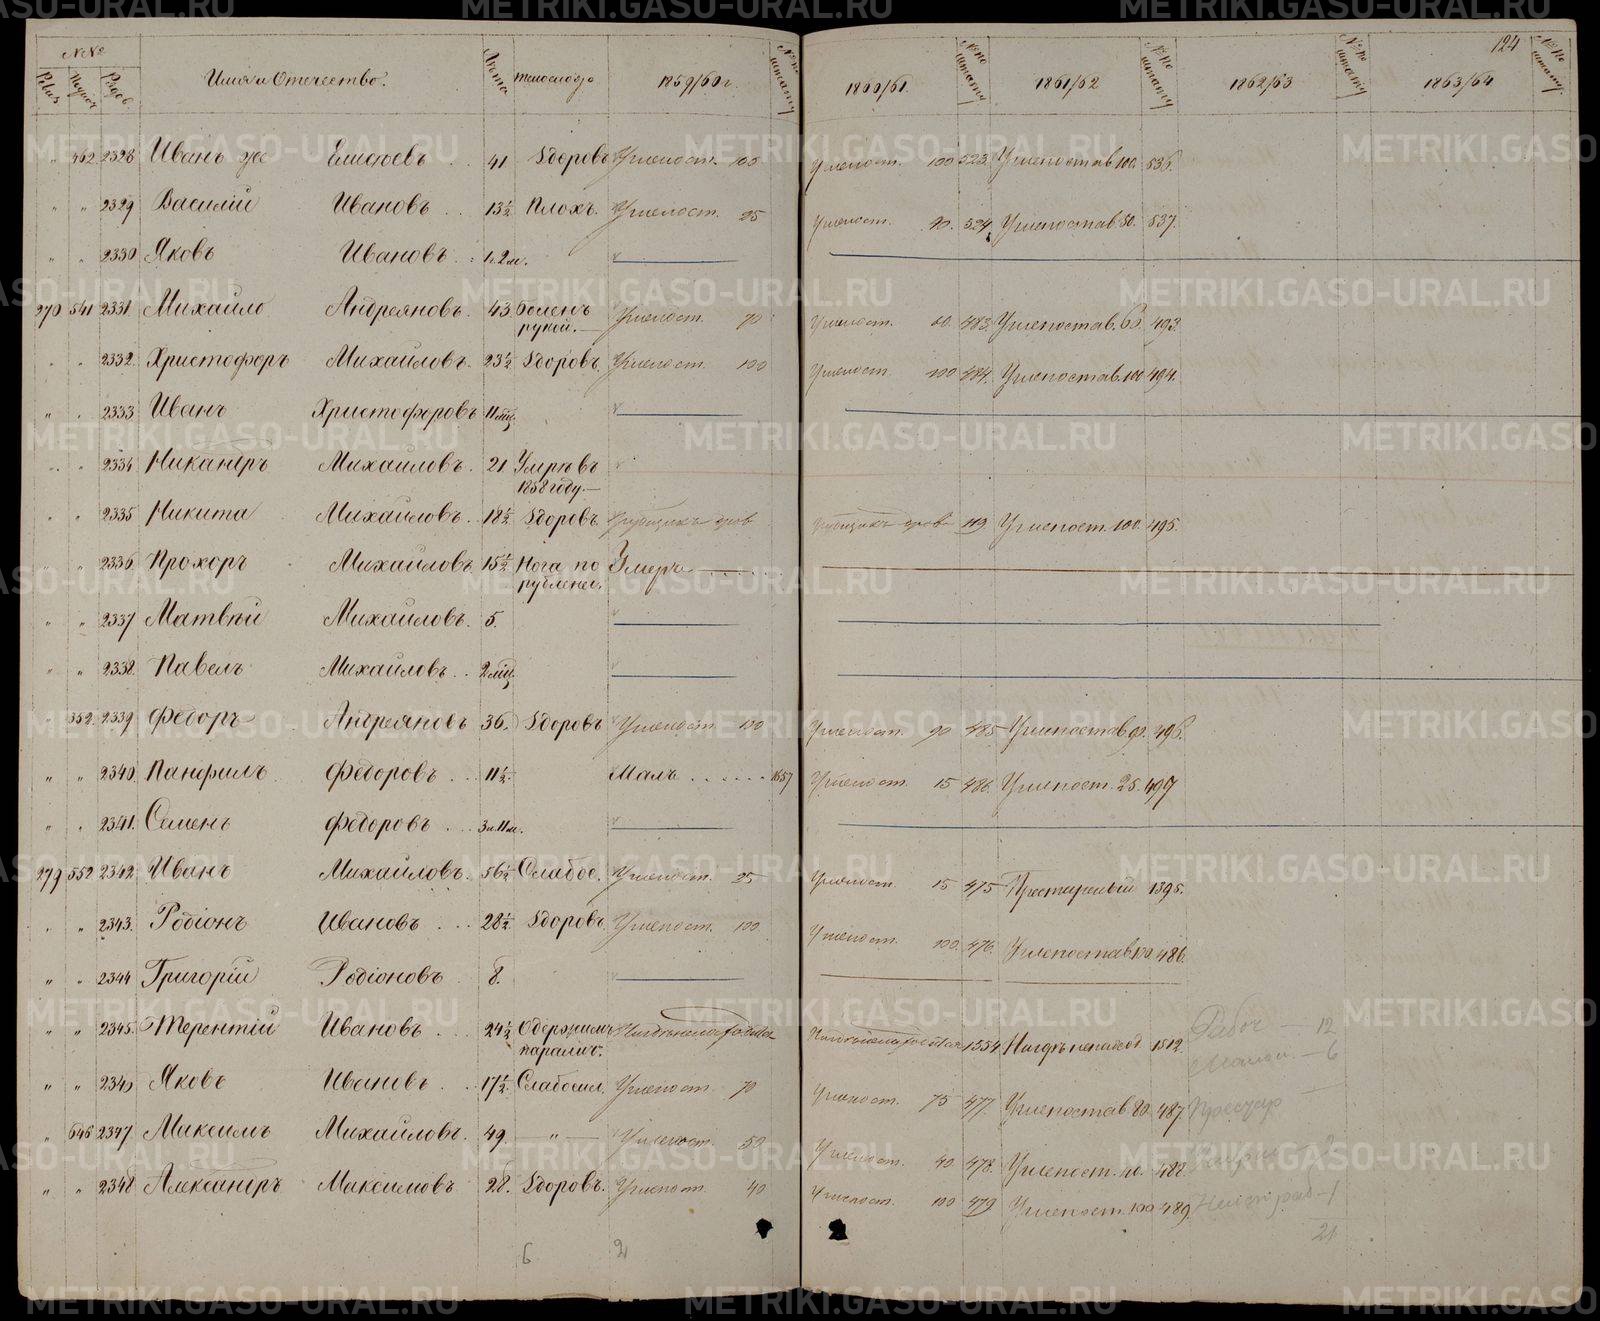 №№ Имя и Отчество. Лѣта Тѣлослож. 1859/60 г. №№ по штату 1860/61. №№ по штату 1861/62 №№ по штату 1862/63 №№ по штату 1863/64 №№ по штату
124
" 462 2328 Иванъ же Елисѣевъ . . 41 Здоровъ Углепост. 100 Углепост. 100 523. Углепостав. 100. 536.
" " 2329 Василій Ивановъ . . 13½ Плохъ. Углепост. 25 Углепост. 524. Углепостав. 80. 537.
" " 2330 Яковъ Ивановъ . : 1 г. 2 м.
270 541 2331 Михайло Андреяновъ. 43 Боленъ рукой.— Углепост. 70 Углепост. 60. 483. Углепостав. 493.
" " 2332. Христофоръ Михайловъ. 23½ Здоровъ. Углепост. 100 Углепост. 100 484. Углепостав. 100 494.
" " 2333 Иванъ Христофоровъ 11 мц.
" " 2334 Никандръ Михайловъ. 21 Умре въ 1858 году.—
" " 2335 Никита Михайловъ. 18½ Здоровъ. Рубщикъ дров Рубщикъ дровъ 119. Углепост. 100. 495.
" " 2336 Прохоръ Михайловъ 15½ Нога порублена. Умеръ
" " 2337 Матвѣй Михайловъ. 5.
" " 2338. Павелъ Михайловъ. . 2 мц.
" 352. 2339 Ѳедоръ Андреяновъ 36. Здоровъ Углепост 100 Углепост. 90 485 Углепостав. 90. 496.
" " 2340. Панфилъ Ѳедоровъ . . . 11½. Малъ . . . . . . 1657 Углепост. 15 486. Углепост. 25. 497
" " 2341. Семенъ Ѳедоровъ . . . 3 г. 11 м.
279 552 2342 Иванъ Михайловъ. 56½ Слабое. Углепост. 25 Углепост. 15 475 Престарелый 1395.
" " 2343. Родіонъ Ивановъ . . . 28½ Здоровъ. Углепост. 100 Углепост. 100. 476. Углепостав. 100. 486.
" " 2344 Григорій Родіоновъ . 8.
" " 2345. Терентій Ивановъ . . . 24½ Одержимъ паралич. 1554 1512.
Рабоч 12
Малол. — 6
" " 2346 Яковъ Ивановъ . . 17½ Слабосил. Углепост. 70 Углепост. 75 477. Углепостав 80. 487
" 646 2347 Максимъ Михайловъ. 49. — " — Углепост. 50 Углепост. 40 478. Углепост. 40. 488.
" " 2348 Александръ Максимовъ 28. Здоровъ. Углепост. 40 Углепост. 100 479 Углепост. 100 489.
21
6 2
METRIKI.GASO-URAL.RU